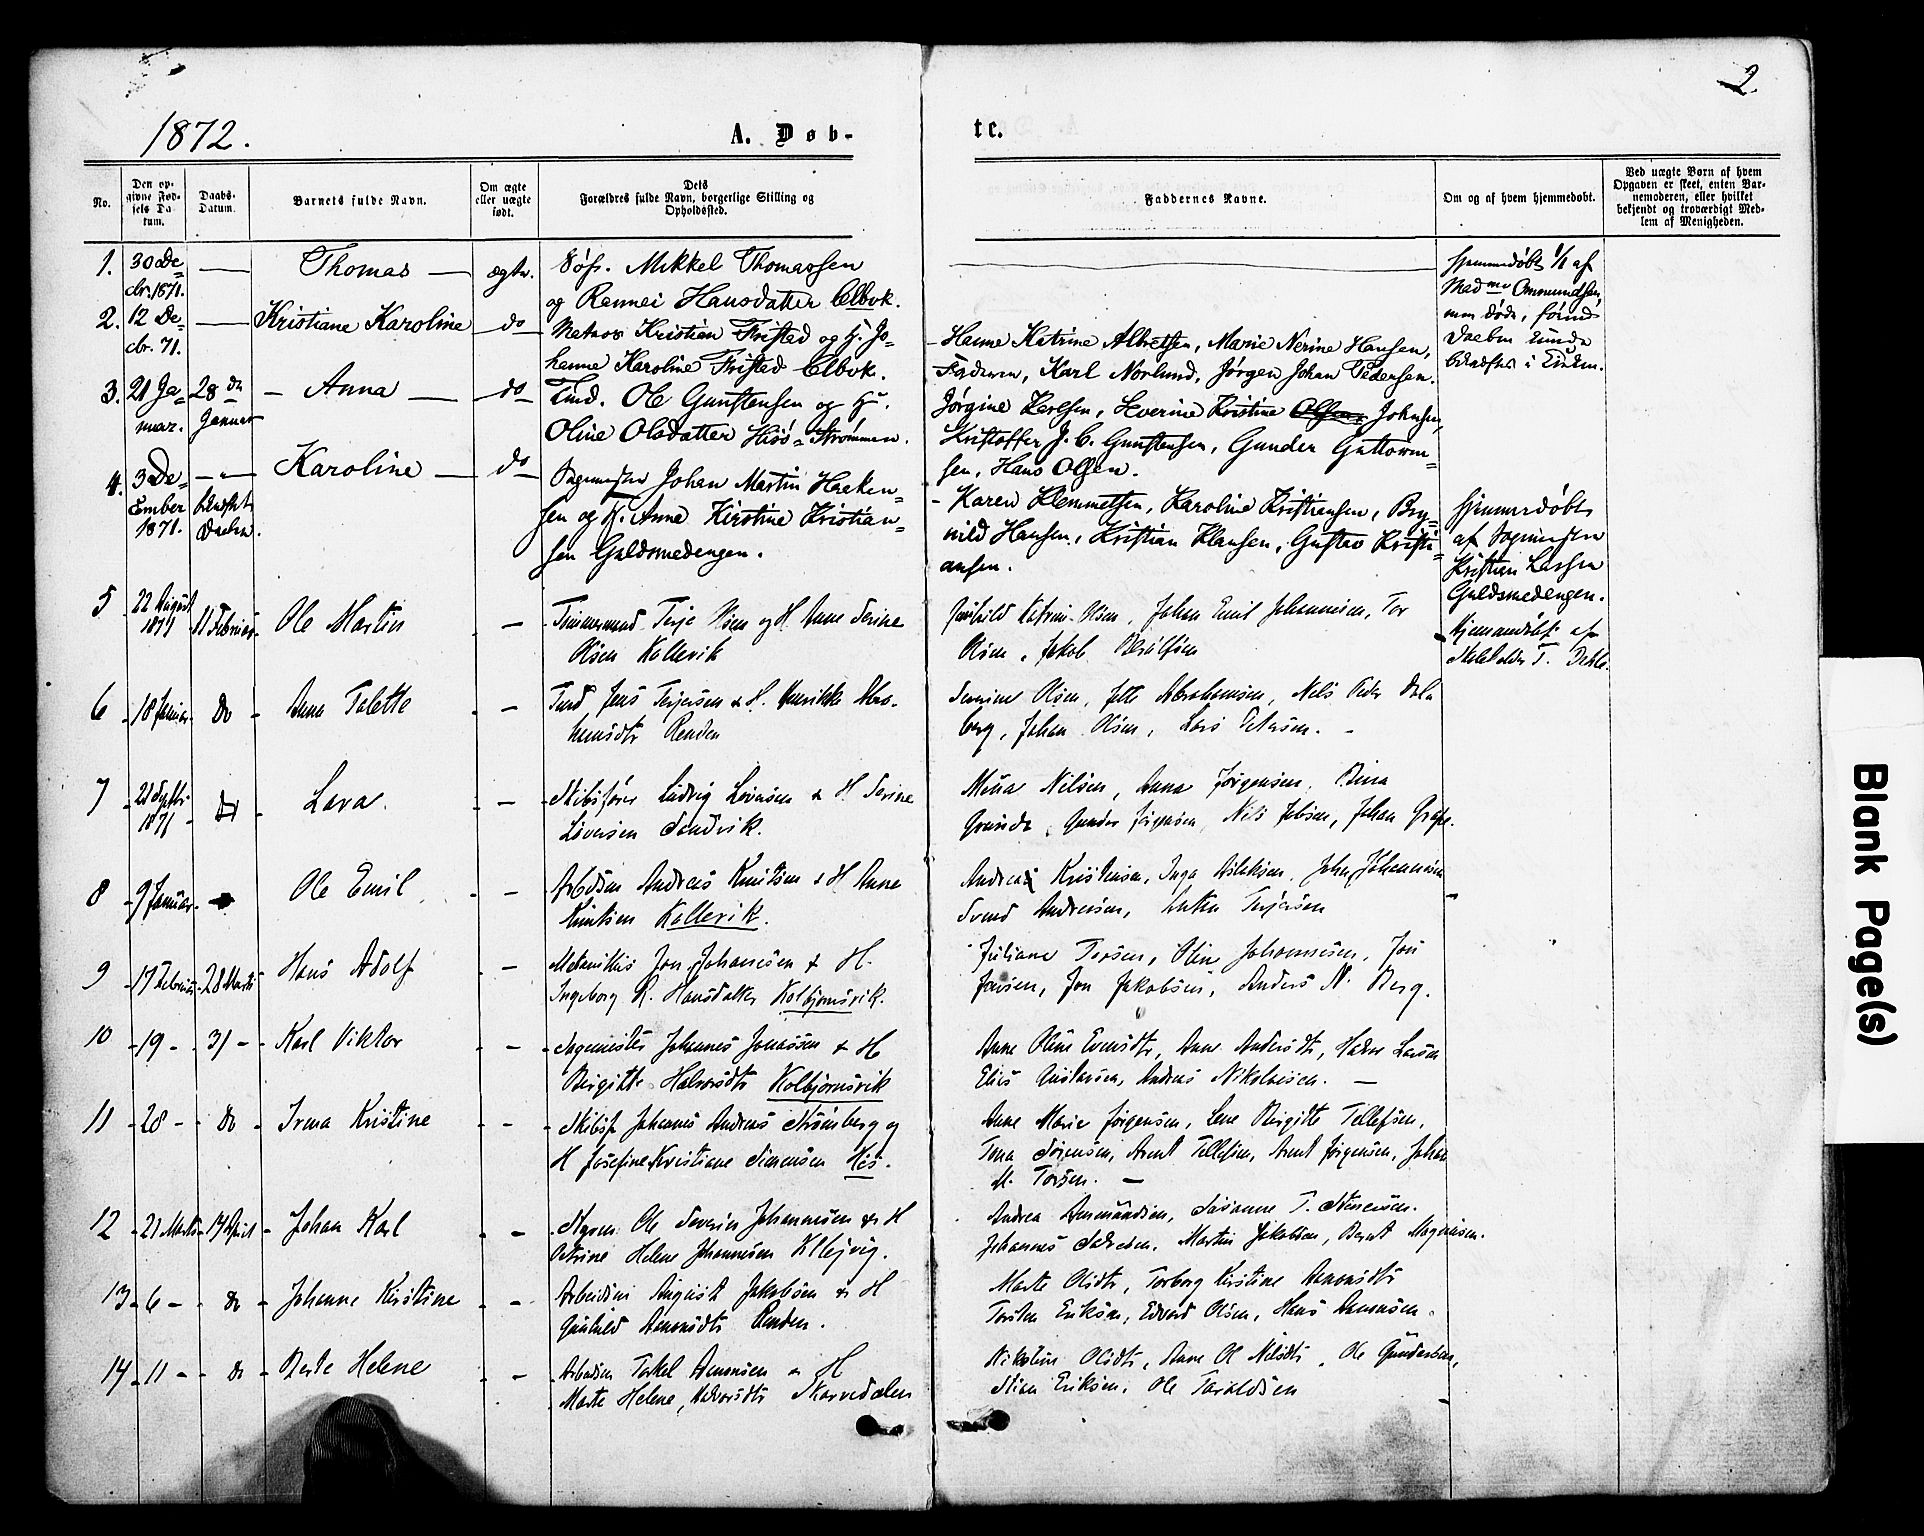 2.
1872.
A. Døb-
te.
No.
Den op-
givne Fød-
sels Da-
tum.
Daabs-
Datum.
Barnets fulde Navn.
Om ægte
eller uægte
født.
Dets
Forældres fulde Navn, borgerlige Stilling og
Opholdssted.
Faddernes Navne.
Om og af hvem hjemmedøbt.
Ved uægte Børn af hvem
Opgaven er skeet, enten Bar-
nemoderen, eller hvilket
bekjendt og troværdigt Med-
lem af Menigheden.
1. 30 De- — Thomas — ægte. Søfr. Mikkel Thomassen
cbr. 1871. og Hansdatter
Hjemmedøbt 1/1 af
Mad Ommundsen,
2. 12 De- — Kristiane Karoline do Matros Kristian Fristad og H. Jo-
cbr. 71. hanne Karoline Fristad
Hanne Katrine Albretsen, Marie Nerine Hansen,
Faderen, Karl Norlund, Jørgen Johan Pedersen.
3. 21 Ja- 28 de — Anna — do Tmd. Ole Gunstensen og H.
nuar. Januar Oline Olsdatter Hisø-Strømmen.
Jørgine Karlsen, Severine Kristine Olsen, Johnsen,
Kristoffer J. C. Gunstensen, Gunder Guttorm-
sen, Hans Olsen.
4. 3 De- Karoline — do Johan Martin Haaken-
cember
1871. Daaben. sen og H. Anne Kirstine Kristian-
sen Guldsmedengen.
Karen Klemmetsen, Karoline Kristiansen, Bry-
nild Hansen, Kristian Klausen, Gustav Kristi-
ansen.
Hjemmedøbt
af
Kristian Larsen
Guldsmedengen.
5 22 August
1871 11 Februar Ole Martin — Tømmermand Terje Olsen og H. Anne Serine
Olsen Kollevik
Katrine Olsen, Johan Emil Johannesen, Tor
Olsen, Jakob
Hjemmedøbt af
6 18 Januar do Anna Talette — Tmd Jens Terjesen & H. Henrikke Abra-
hamsdtr Renden
Severine Olsen, Jette Abrahamsen, Nils Peder Dal-
berg, Johan Olsen, Lars Petersen.
7 21 Septbr
1871 do Lava. — Skibsfører Ludvig Løvesen & H. Serine
Løvesen Sandvik.
Mina Nilsen, Anna Jørgensen,
Gunder Jørgensen, Nils Jebsen, Johan
8 9 Januar Ole Emil — Arbdsm Andreas Knutsen & H Anne
Knutsen Kollevik.
Andreas Kristensen, Inga Aslaksen, John Johannesen
Svend Andreasen, Terjesen
9 17 Februar 28 Marts Hans Adolf — Mekanikus Jon Johansen & H.
Ingeborg R. Hansdatter Kolbjørnsvik.
Juliane Torsen, Oline Johannesen, Jon
Jensen, Jon Jakobsen, Anders N. Berg.
10 19 — 31 — Karl Viktor — Sagmester Johannes Jonassen & H
Birgitte Halvorsdtr Kolbjørnsvik
Anne Oline Evensdtr, Anne Andersdtr, Halvor Larsen
Elias Gustavsen, Andreas Nikolaisen. —
11 28 — do Irma Kristine — Skibsf Johannes Andreas Strømberg og
H Josefine Kristiane Simensen His.
Anne Marie Jørgensen, Lene Birgitte Tellefsen,
Tona Sørensen, Arent Tellefsen, Arent Jørgensen, Johan
M. Torsen. —
12 21 Marts 14 April Johan Karl — Ole Severin Johannesen & H
Petrine Helene Johannesen
Andrea Aanundsen, Susanne T.
Johannes Martin Jakobsen, Bernt Magnusen.
13 6 — do Johanne Kirstine — Arbeidsm August Jakobsen & H
Gunhild Aanonsdtr Renden.
Marte Olsdtr, Torborg Kirstine Aanonsdtr
Torsten Eriksen, Edvard Olsen, Hans Aanonsen.
14 11 — do Berte Helene — Arbedsm Torkel Aanonsen & H
Marte Helene Halvorsdtr Skarvedalen
Nikoline Olsdtr, Anne Ol Nilsdtr, Ole Gundersen,
Stian Eriksen, Ole Taraldsen
Blank Page(s)